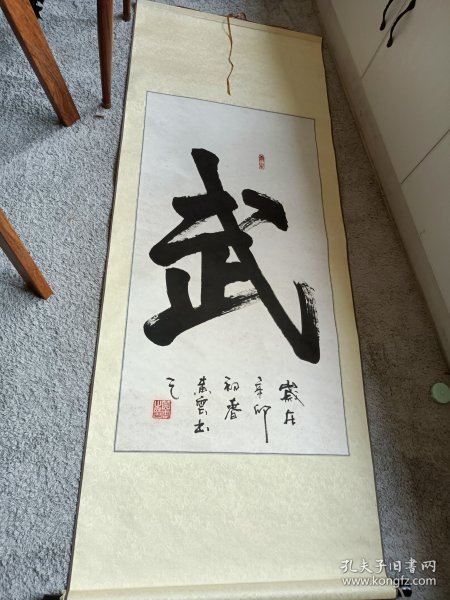 武
歲在
辛卯
初春
書
之
孔夫子旧书网
www.kongfz.com